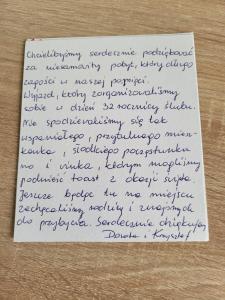 Chcielibyśmy serdecznie podziękować
za niesamowity pobyt, który długo
zagości w naszej pamięci.
Wyjazd, który zorganizowaliśmy
sobie w dzień 32 rocznicy ślubu.
Nie spodziewaliśmy się tak
wspaniałego, przytulnego miesz-
kanka, słodkiego poczęstunku
no i winka, którym mogliśmy
podnieść toast z okazji święta.
Jeszcze będąc tu na miejscu
zachęcaliśmy rodzinę i znajomych
do przybycia. Serdecznie dziękujemy
Dorota i Krzysztof